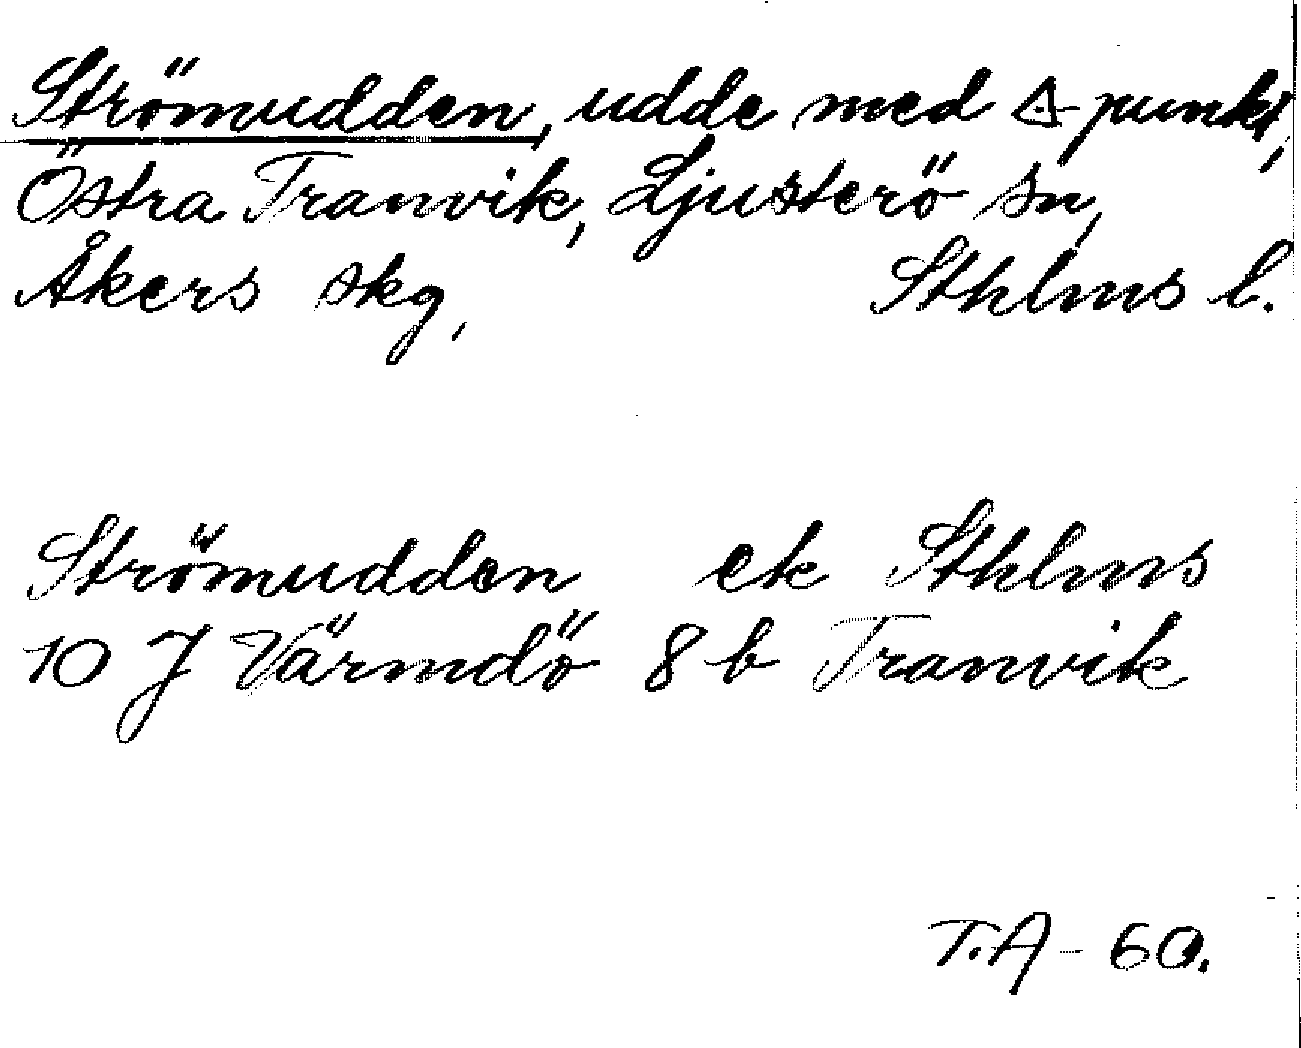 Strömudden, udde med △-punkt,
Östra Tranvik, Ljusterö sn,
Åkers skg, Sthlms l.
Strömudden ek Sthlms
10 J Värmdö 8 b Tranvik
T.A-60.